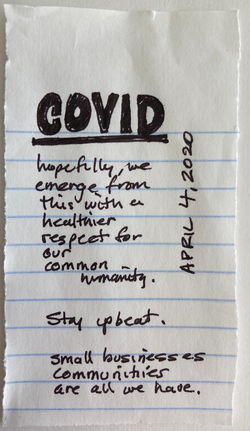 COVID
hopefully, we
emerge from
this with a
healthier
respect for
our
common
humanity.
APRIL 4, 2020
Stay upbeat.
small businesses
communities
are all we have.